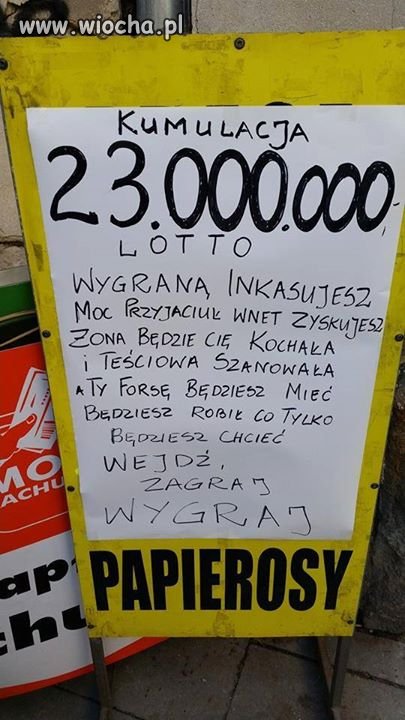 www.wiocha.pl
KUMULACJA
23.000.000,-
LOTTO
WYGRANĄ INKASUJESZ
MOC PRZYJACIUŁ WNET ZYSKUJESZ
ŻONA BĘDZIE CIĘ KOCHAŁA
i TEŚCIOWA SZANOWAŁA
A TY FORSĘ BĘDZIESZ MIEĆ
BĘDZIESZ ROBIŁ CO TYLKO
BĘDZIESZ CHCIEĆ
WEJDŹ,
ZAGRAJ
WYGRAJ
PAPIEROSY